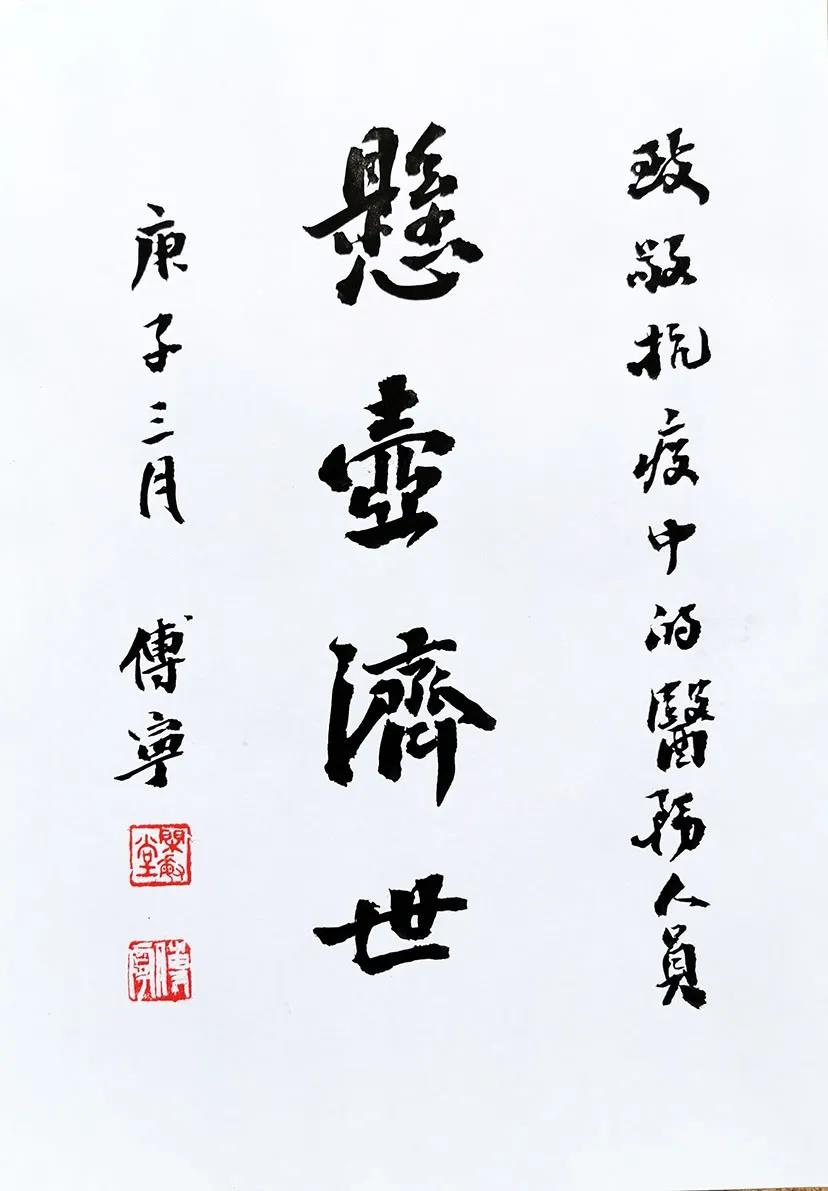 致敬抗疫中的醫務人員
懸壺濟世
庚子三月 傅寧
傅寧